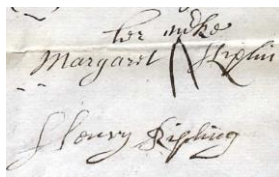 her marke
Margaret Kiplin
Henry Kipling